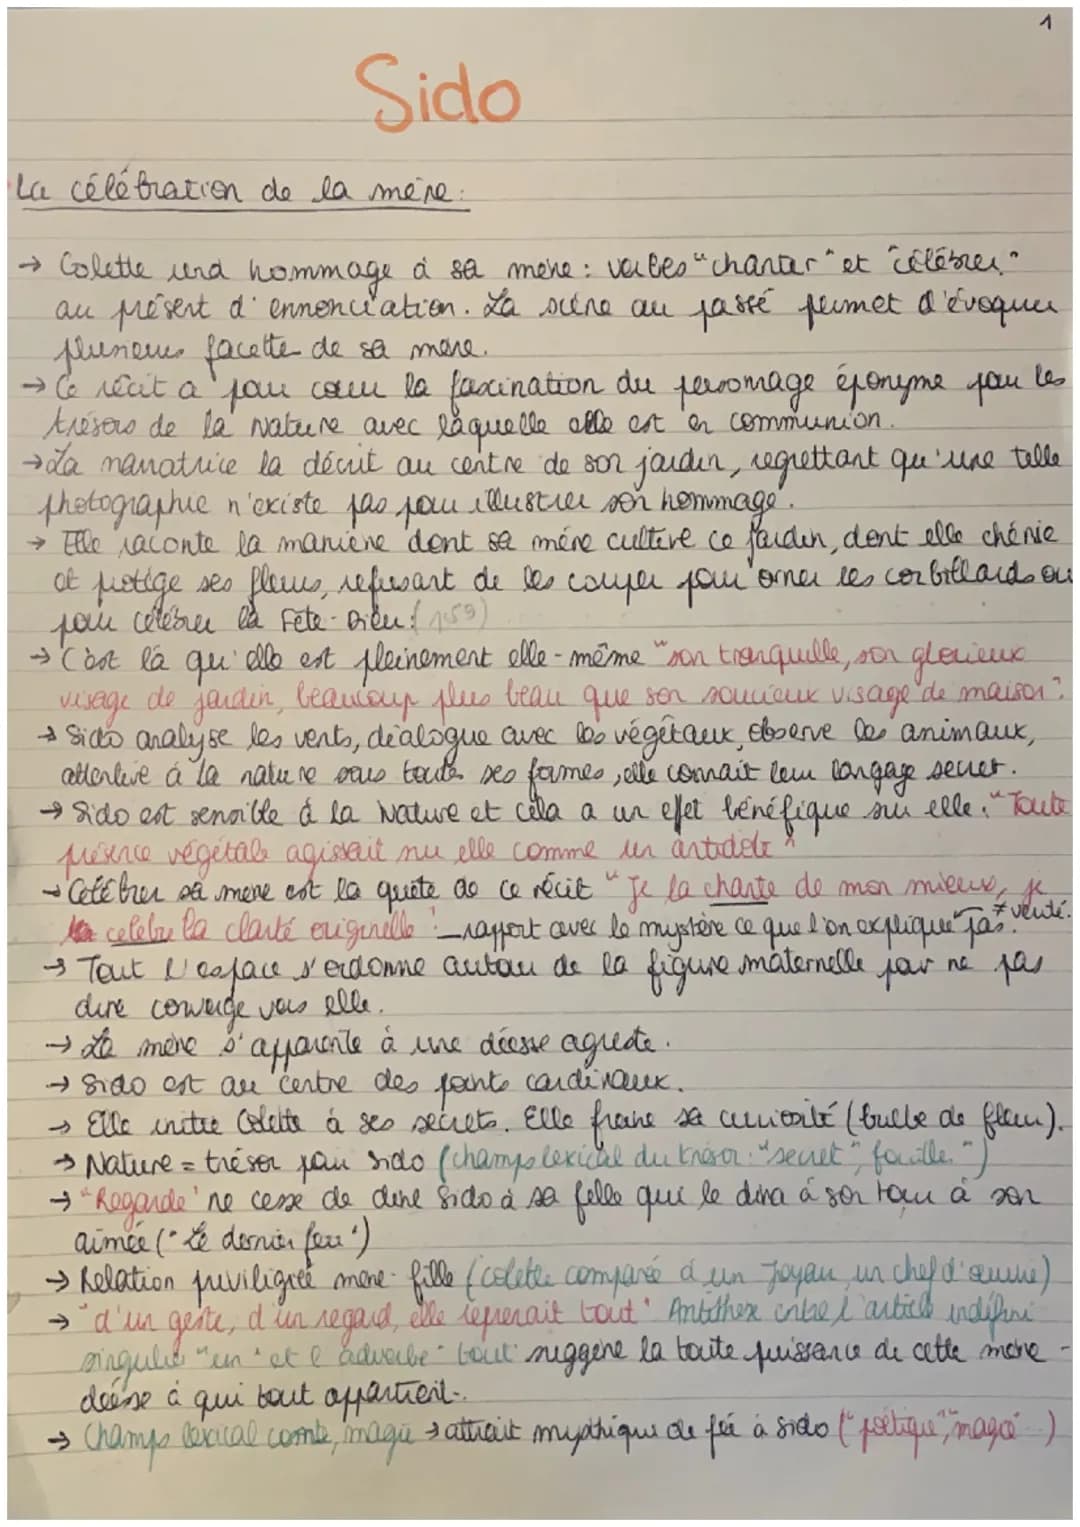 1
Sido
La célébration de la mère:
→ Colette rend hommage à sa mère : verbes "chanter" et "célébrer"
au présent d'ennonciation. La scène au passé permet d'évoquer
plusieurs facette de sa mère.
→ Ce récit a pour cœur la fascination du personnage éponyme pour les
trésors de la nature avec laquelle elle est en communion.
→ La narratrice la décrit au centre de son jardin, regrettant qu'une telle
photographie n'existe pas pour illustrer son hommage.
→ Elle raconte la manière dont sa mère cultive ce jardin, dont elle chérie
et protège ses fleurs, refusant de les couper pour orner les corbillards ou
pour célébrer la Fête-Dieu. (159)
→ C'est là qu'elle est pleinement elle-même "son tranquille, son glorieux
visage de jardin, beaucoup plus beau que son soucieux visage de maison".
→ Sido analyse les vents, dialogue avec les végétaux, observe les animaux,
attentive à la nature sous toutes ses formes, elle connait leur langage secret.
→ Sido est sensible à la Nature et cela a un effet bénéfique sur elle. "Toute
présence végétale agissait sur elle comme un antidote"
→ Célébrer sa mère est la quête de ce récit "Je la chante de mon mieux, je
célèbre la clarté originelle". rapport avec le mystère ce que l'on explique pas. ≠ vérité.
→ Tout l'espace s'ordonne autour de la figure maternelle pour ne pas
dire converge vers elle.
→ La mère s'apparente à une déesse agreste.
→ Sido est au centre des points cardinaux.
→ Elle initie Colette à ses secrets. Elle freine sa curiosité (bulbe de fleur).
→ Nature = trésor pour Sido (champs lexical du trésor : "secret", fouille ")
→ "Regarde" ne cesse de dire Sido à sa fille qui le dira à son tour à son
aimée ("Le dernier feu")
→ Relation priviligiée mère-fille (Colette comparée à un Joyau, un chef d'œuvre)
→ "d'un geste, d'un regard, elle reprenait tout" Antithèse entre l'article indéfini
singulier "un" et l'adverbe "tout" suggère la toute puissance de cette mère-
déesse à qui tout appartient.
→ Champs lexical conte, magie → attrait mythique de fée à Sido ("poétique", "magie" )